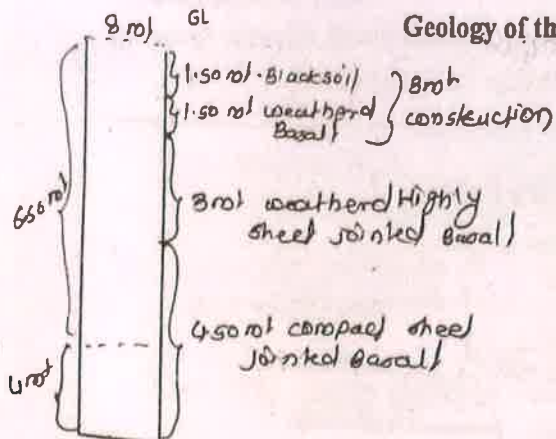 Geology of th
8 mt GL
1.50 mt. Blacksoil
1.50 mt weatherd
Basalt
3mt
constuction
6.50 mt
3mt weatherd Highly
sheet jointed Basalt
4.50 mt compact sheet
jointed Basalt
4mt